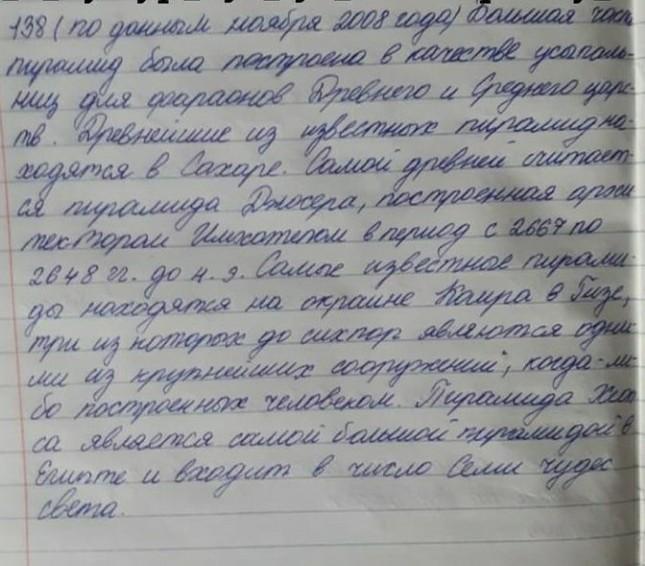 138 (по данным ноября 2008 года) Большая часть
пирамид была построена в качестве усыпаль-
ниц для фараонов Древнего и Среднего царс-
тв. Древнейшие из известных пирамид на-
ходятся в Сахаре. Самой древней считает-
ся пирамида Джосера, построенная архи
тектором Имхотепом в период с 2667 по
2648 гг. до н. э. Самые известные пирами-
ды находятся на окраине Каира в Гизе,
три из которых до сих пор являются одни-
ми из крупнейших сооружений, когда-ли-
бо построенных человеком. Пирамида Хеоп
са является самой большой пирамидой в
Египте и входит в число Семи чудес
света.